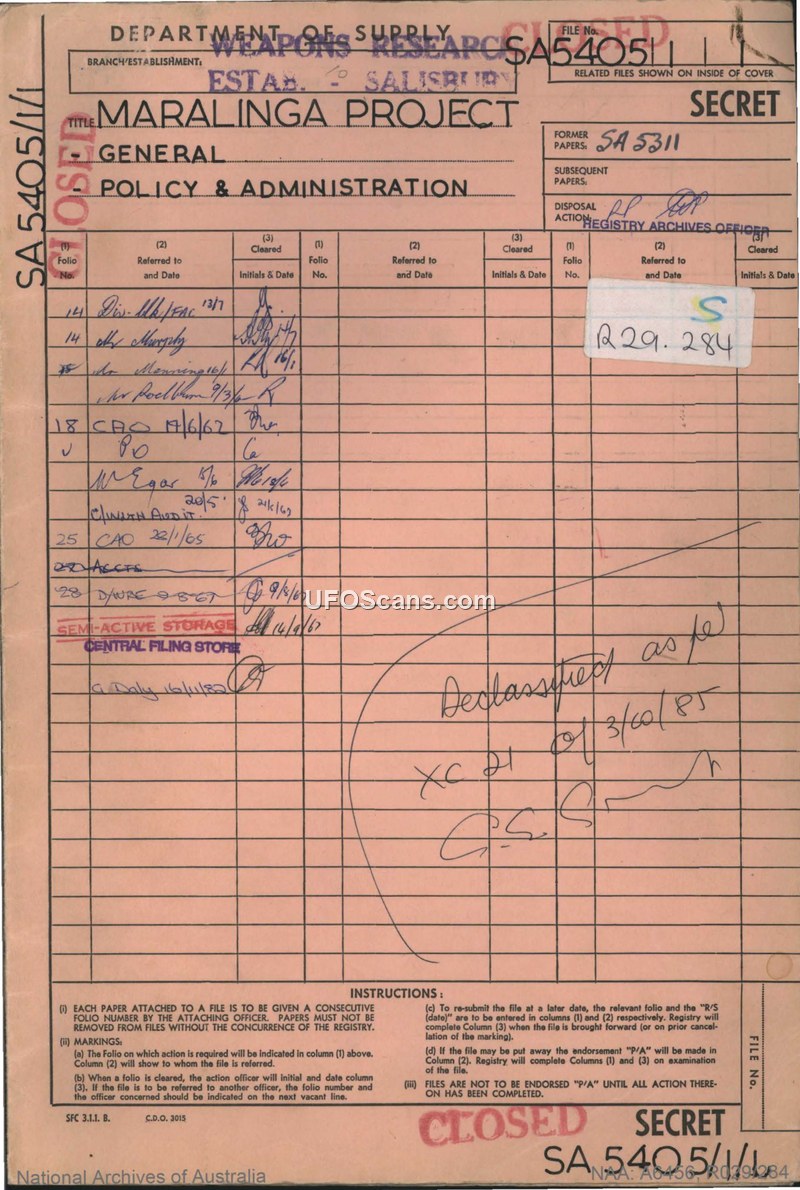 DEPARTMENT OF SUPPLY
CLOSED
WEAPONS RESEARCH
ESTAB. - SALISBURY
BRANCH/ESTABLISHMENT:
FILE No.
SA5405/1/1
RELATED FILES SHOWN ON INSIDE OF COVER
SECRET
SA 5405/1/1
CLOSED
TITLE MARALINGA PROJECT
- GENERAL
- POLICY & ADMINISTRATION
FORMER PAPERS: SA 5311
SUBSEQUENT PAPERS:
DISPOSAL ACTION
REGISTRY ARCHIVES OFFICER
(1) Folio No. (2) Referred to and Date (3) Cleared Initials & Date (1) Folio No. (2) Referred to and Date (3) Cleared Initials & Date (1) Folio No. (2) Referred to and Date (3) Cleared Initials & Date
S
R29.284
14 13/7
14 Mr Murphy
Manning 16/1 16/1
9/3/6
18 CAO 19/6/62
PO
Mr Egar
20/5
C/WLTH AUDIT. 21/5/63
25 CAO 22/1/65
27 ACCTS
28 D/WRE 9-8-67 9/8/67
SEMI-ACTIVE STORAGE 14/9/67
CENTRAL FILING STORE
G Daly 16/11/82
UFOScans.com
Declassified as per
XC 21 of 3/10/85
INSTRUCTIONS:
(i) EACH PAPER ATTACHED TO A FILE IS TO BE GIVEN A CONSECUTIVE
FOLIO NUMBER BY THE ATTACHING OFFICER. PAPERS MUST NOT BE
REMOVED FROM FILES WITHOUT THE CONCURRENCE OF THE REGISTRY.
(ii) MARKINGS:
(a) The Folio on which action is required will be indicated in column (1) above.
Column (2) will show to whom the file is referred.
(b) When a folio is cleared, the action officer will initial and date column
(3). If the file is to be referred to another officer, the folio number and
the officer concerned should be indicated on the next vacant line.
(c) To re-submit the file at a later date, the relevant folio and the "R/S
(date)" are to be entered in columns (1) and (2) respectively. Registry will
complete Column (3) when the file is brought forward (or on prior cancel-
lation of the marking).
(d) If the file may be put away the endorsement "P/A" will be made in
Column (2). Registry will complete Columns (1) and (3) on examination
of the file.
(iii) FILES ARE NOT TO BE ENDORSED "P/A" UNTIL ALL ACTION THERE-
ON HAS BEEN COMPLETED.
FILE No.
SFC 3.1.1. B. C.D.O. 3015
CLOSED
SECRET
SA 5405/1/1
National Archives of Australia
NAA: A6456, R029/284